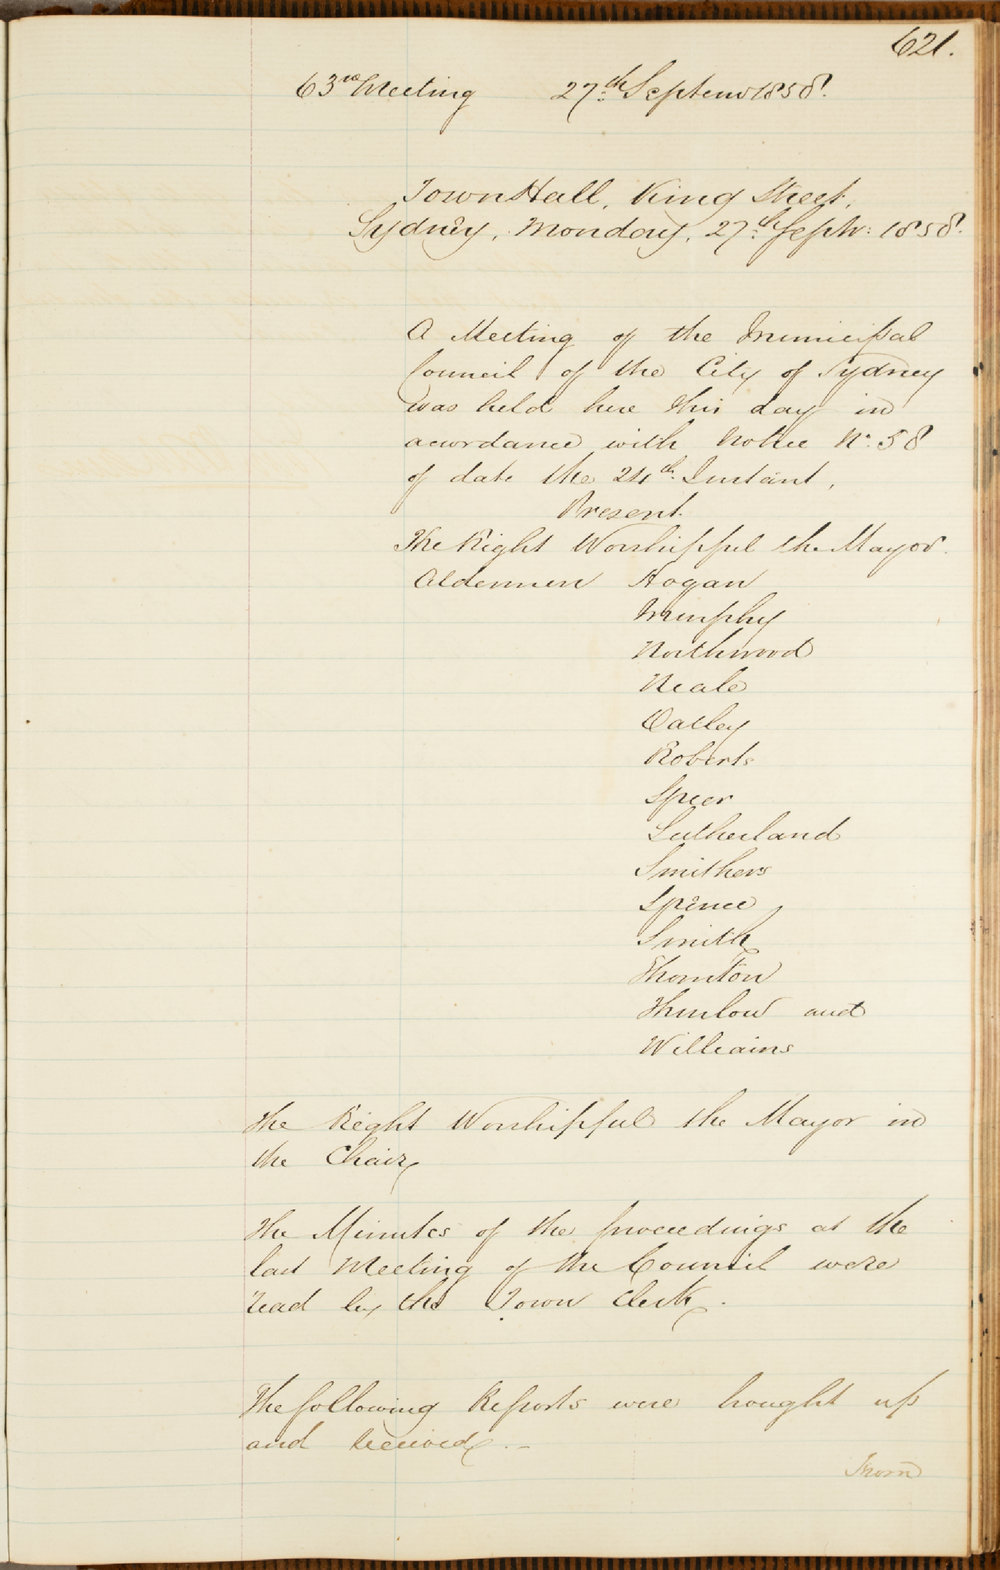 621.
63rd Meeting 27th Septemr 1858.
Town Hall, King Street,
Sydney, Monday, 27th Septr: 1858.
A Meeting of the Municipal
Council of the City of Sydney
was held here this day in
accordance with Notice No. 58
of date the 24th Instant,
Present
The Right Worshipful the Mayor.
Aldermen Hogan
Murphy
Northwood
Neale
Oatley
Roberts
Speer
Sutherland
Smithers
Spence
Smith
Thornton
Thurlow and
Williams
The Right Worshipful the Mayor in
the Chair
The Minutes of the proceedings at the
last Meeting of the Council were
read by the Town Clerk.
The following Reports were brought up
and received. –
From